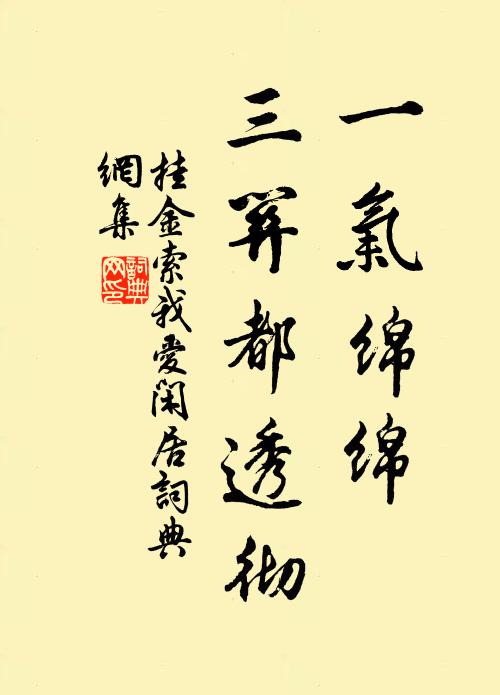 一氣綿綿
三関都透彻
挂金索我愛閑居詞典
網集
詞典
网印